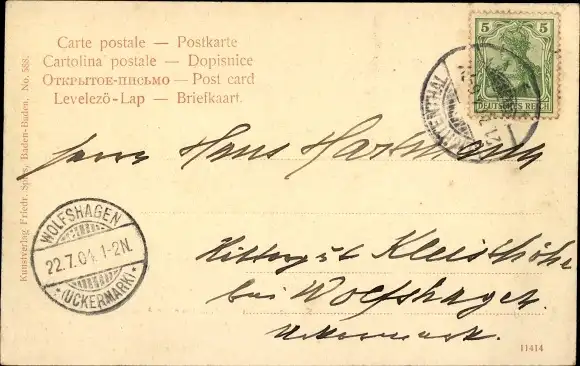 Carte postale — Postkarte
Cartolina postale — Dopisnice
Открытое-письмо — Post card
Levelezö-Lap — Briefkaart.
Kunstverlag Friedr. Spies, Baden-Baden, No. 588.
5 5
DEUTSCHES REICH
Herrn Hans Hartmann
WOLFSHAGEN
22.7.04. 1-2N.
*(UCKERMARK)*
Rittergut Kleisthöhe
bei Wolfshagen.
Uckermark.
11414